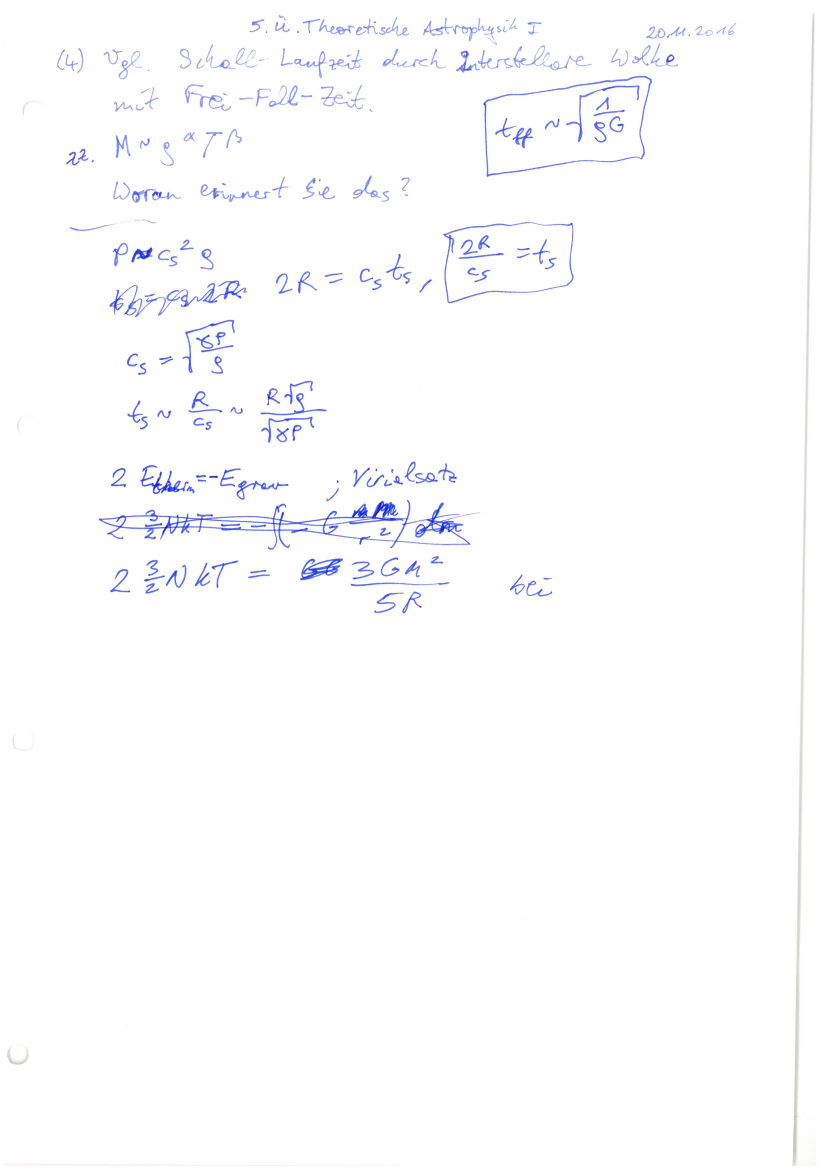 5. Ü. Theoretische Astrophysik I 20.11.2016
(4) Vgl. Schall-Laufzeit durch Interstellare Wolke
mit Frei-Fall-Zeit.
t_ff ~ √(1/(ρG))
zz. M ~ ρ^α T^β
Woran erinnert Sie das?
P ~ c_s² ρ
2R = c_s t_s, 2R/c_s = t_s
c_s = √(γP/ρ)
t_s ~ R/c_s ~ R√ρ/√(γP)
2 E_therm = -E_grav ; Virialsatz
2 3/2 NkT = 3GM²/5R bei